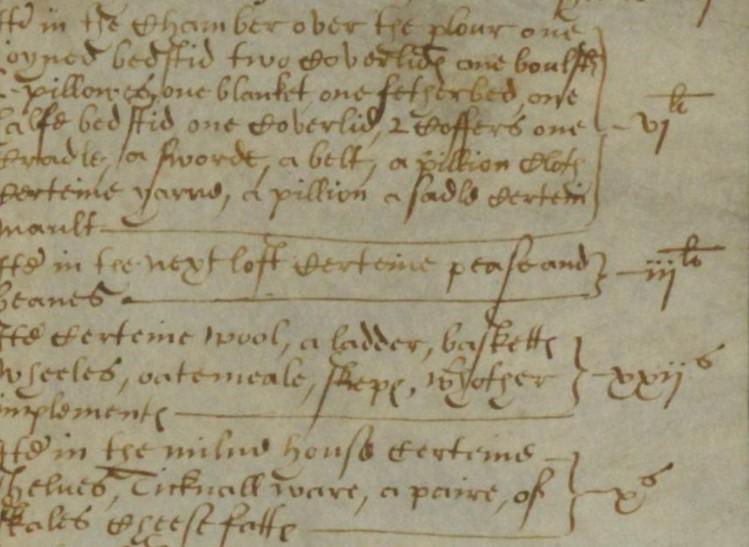 Itd in the Chamber over the plour one
joyned bedstid two Coverlids one boulster
2 pillowes one blanket one fetherbed, one
halfe bedstid one Coverlid, 2 Coffers one
Cradle, a sworde, a belt, a pillion Cloth
Certeine yarne, a pillion a sadle Certein
mault vi li
Itd in the next loft Certeine pease and
beanes iii li
Itd Certeine wool, a ladder, basketts
wheeles, oatemeale, skeps, wth other
implements xxii s
Itd in the milne house Certeine
shelves, Ticknall ware, a paire, of
skales Cheesefatts x s